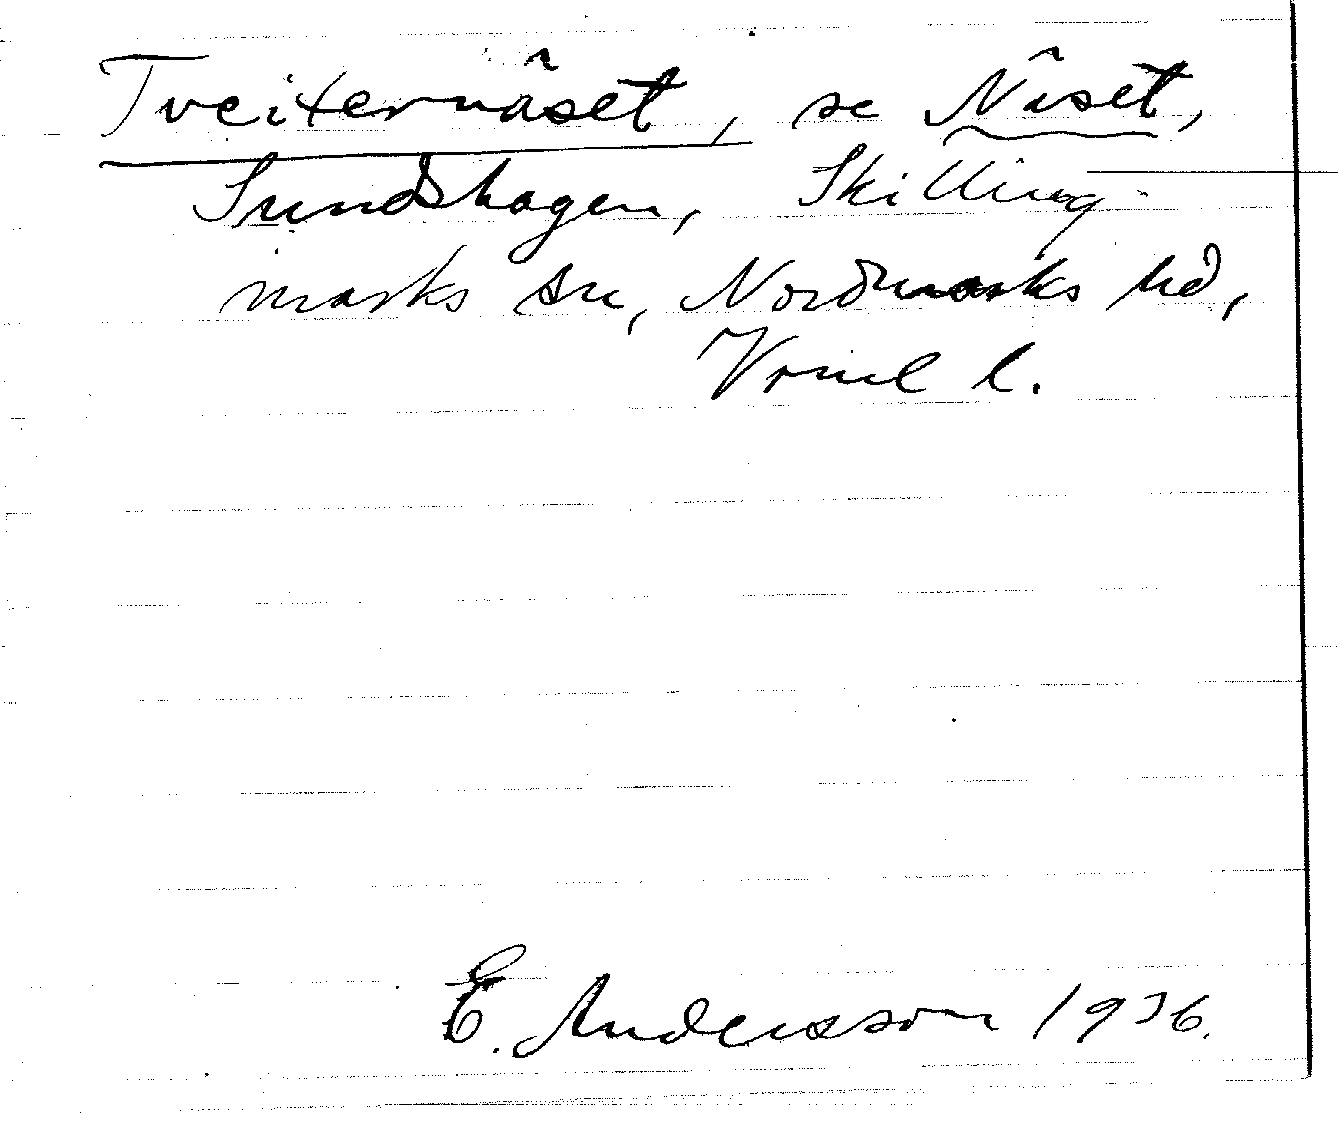 Tveiternäset, se Näset,
Sundshagen, Skilling-
marks sn, Nordmarks hd,
Vrml l.
E. Andersson 1936.